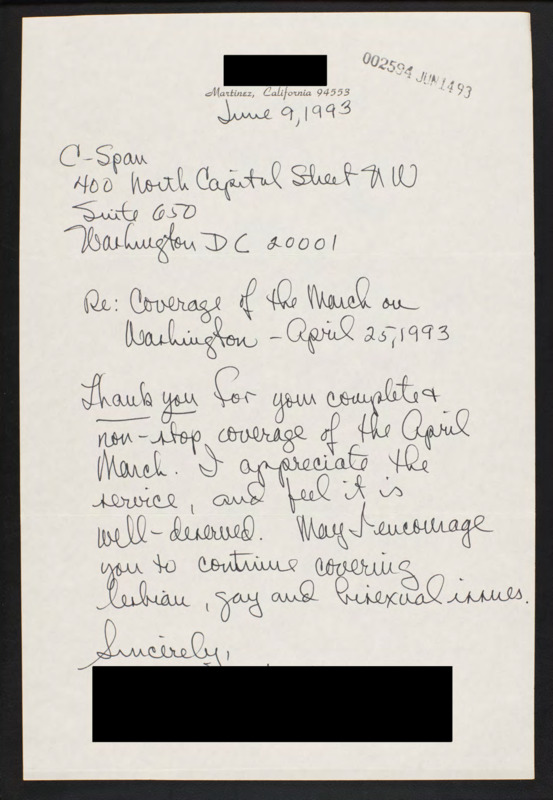 002594 JUN 14 93
Martinez, California 94553
June 9, 1993
C-Span
400 North Capital Street NW
Suite 650
Washington DC 20001
Re: Coverage of the March on
Washington - April 25, 1993
Thank you for your complete &
non-stop coverage of the April
March. I appreciate the
service, and feel it is
well-deserved. May I encourage
you to continue covering
lesbian, gay and bisexual issues.
Sincerely,